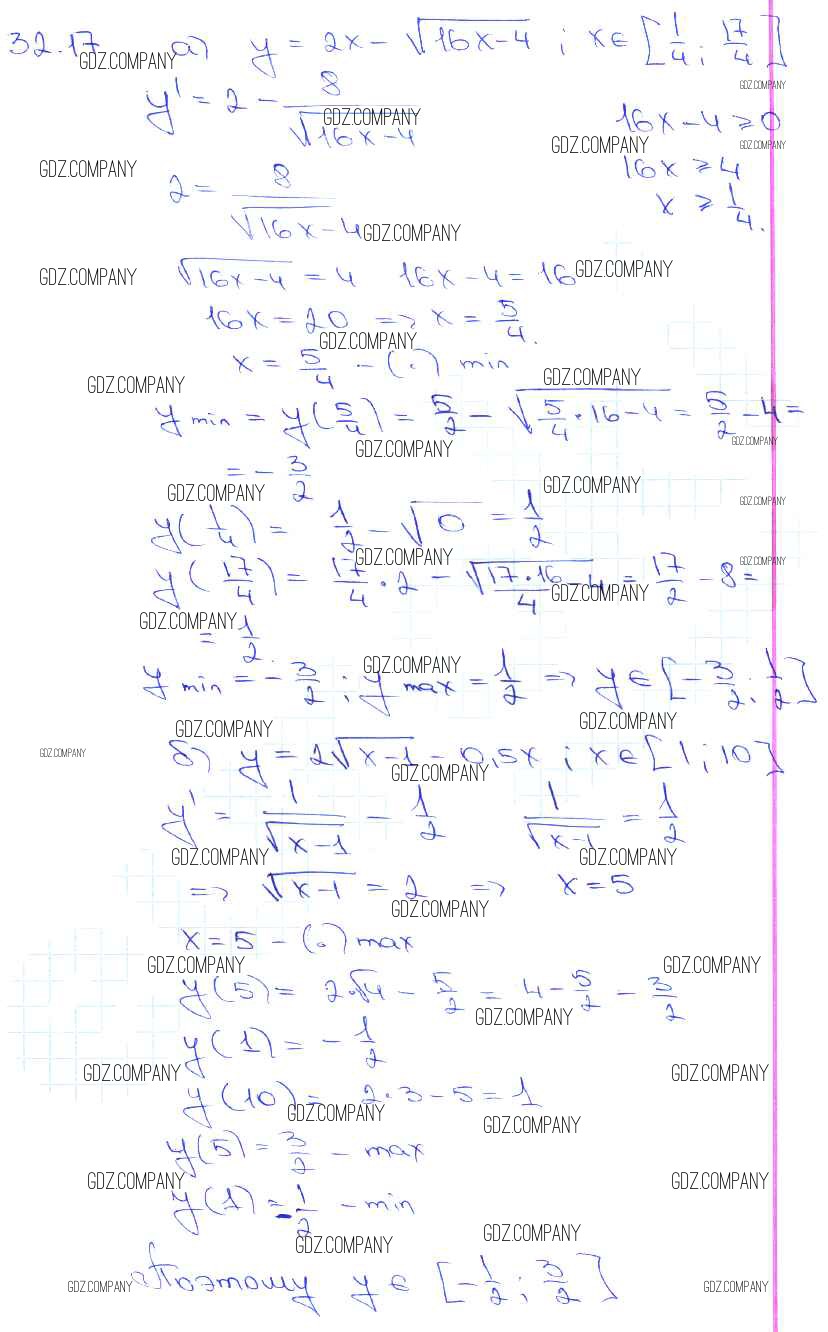 32.17 а) y = 2x - √(16x-4) ; x∈[1/4 ; 17/4]
y' = 2 - 8/√(16x-4)
16x-4 ≥ 0
2 = 8/√(16x-4)
16x ≥ 4
x ≥ 1/4.
√(16x-4) = 4 16x-4 = 16
16x = 20 => x = 5/4.
x = 5/4 - (·) min
y min = y(5/4) = 5/2 - √(5/4 · 16-4) = 5/2 - 4 =
= - 3/2
y(1/4) = 1/2 - √0 = 1/2
y(17/4) = 17/4 · 2 - √(17·16/4 - 4) = 17/2 - 8 =
= 1/2.
y min = - 3/2 ; y max = 1/2 => y∈[-3/2 ; 1/2]
б) y = 2√(x-1) - 0,5x ; x∈[1 ; 10]
y' = 1/√(x-1) - 1/2 1/√(x-1) = 1/2
=> √(x-1) = 2 => x = 5
x = 5 - (·) max
y(5) = 2·√4 - 5/2 = 4 - 5/2 - 3/2
y(1) = - 1/2
y(10) = 2·3 - 5 = 1
y(5) = 3/2 - max
y(1) = - 1/2 - min
Поэтому y∈[-1/2 ; 3/2]
GDZ.COMPANY